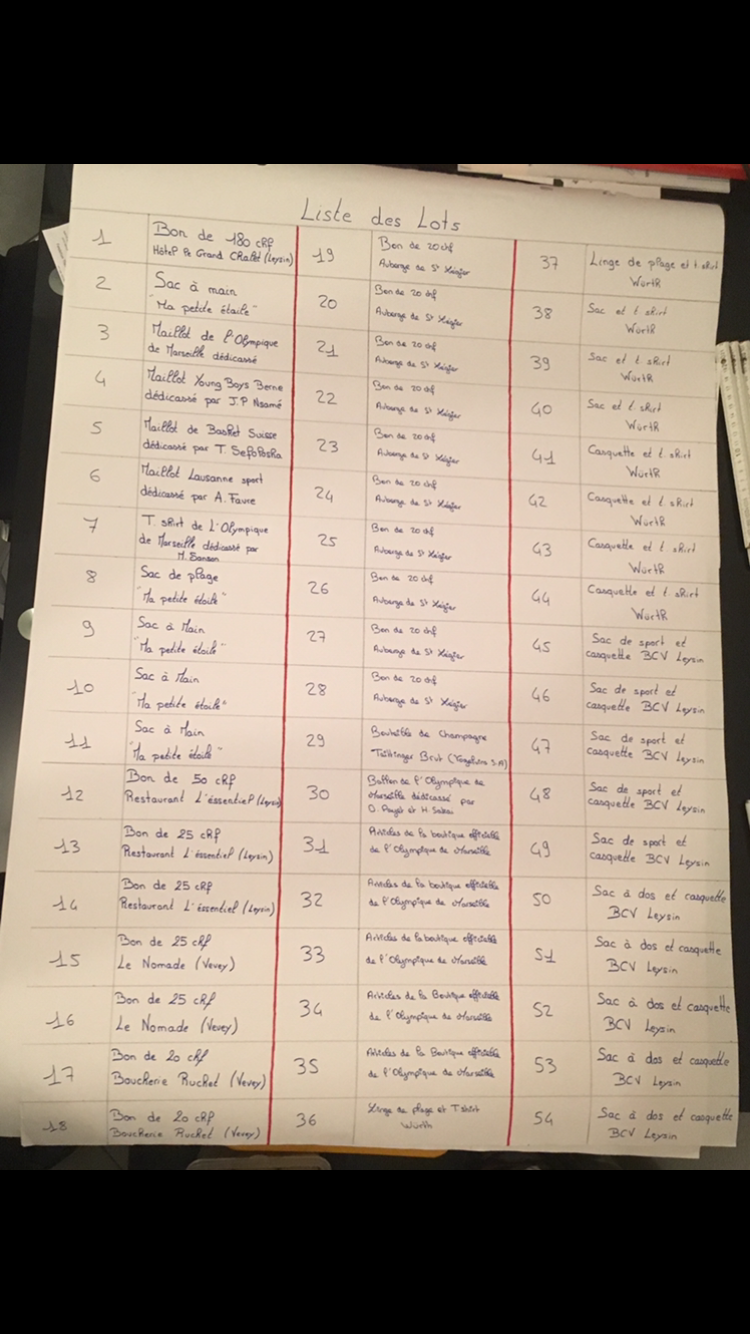 Liste des Lots
1
Bon de 180 chf
Hôtel Le Grand Chalet (Leysin)
2
Sac à main
"Ma petite étoile"
3
Maillot de l'Olympique
de Marseille dédicassé
4
Maillot Young Boys Berne
dédicassé par J.P Nsamé
5
Maillot de Basket Suisse
dédicassé par T. Sefolosha
6
Maillot Lausanne sport
dédicassé par A. Faure
7
T. shirt de L'Olympique
de Marseille dédicassé par
M.
8
Sac de plage
"Ma petite étoile"
9
Sac à Main
"Ma petite étoile"
10
Sac à Main
"Ma petite étoile"
11
Sac à Main
"Ma petite étoile"
12
Bon de 50 chf
Restaurant L'éssentiel (Leysin)
13
Bon de 25 chf
Restaurant L'éssentiel (Leysin)
14
Bon de 25 chf
Restaurant L'éssentiel (Leysin)
15
Bon de 25 chf
Le Nomade (Vevey)
16
Bon de 25 chf
Le Nomade (Vevey)
17
Bon de 20 chf
Boucherie Ruchet (Vevey)
18
Bon de 20 chf
Boucherie Ruchet (Vevey)
19
Bon de 20 chf
Auberge de St Légier
20
Bon de 20 chf
Auberge de St Légier
21
Bon de 20 chf
Auberge de St Légier
22
Bon de 20 chf
Auberge de St Légier
23
Bon de 20 chf
Auberge de St Légier
24
Bon de 20 chf
Auberge de St Légier
25
Bon de 20 chf
Auberge de St Légier
26
Bon de 20 chf
Auberge de St Légier
27
Bon de 20 chf
Auberge de St Légier
28
Bon de 20 chf
Auberge de St Légier
29
Bouteille de Champagne
Taittinger Brut
30
Ballon de l'Olympique de
Marseille dédicassé par
D. Payet et H. Sakai
31
Articles de la boutique officielle
de l'Olympique de Marseille
32
Articles de la boutique officielle
de l'Olympique de Marseille
33
Articles de la boutique officielle
de l'Olympique de Marseille
34
Articles de la Boutique officielle
de l'Olympique de Marseille
35
Articles de la Boutique officielle
de l'Olympique de Marseille
36
Linge de plage et T shirt
Würth
37
Linge de plage et t shirt
Würth
38
Sac et t. shirt
Würth
39
Sac et t. shirt
Würth
40
Sac et t. shirt
Würth
41
Casquette et t. shirt
Würth
42
Casquette et t. shirt
Würth
43
Casquette et t. shirt
Würth
44
Casquette et t. shirt
Würth
45
Sac de sport et
casquette BCV Leysin
46
Sac de sport et
casquette BCV Leysin
47
Sac de sport et
casquette BCV Leysin
48
Sac de sport et
casquette BCV Leysin
49
Sac de sport et
casquette BCV Leysin
50
Sac à dos et casquette
BCV Leysin
51
Sac à dos et casquette
BCV Leysin
52
Sac à dos et casquette
BCV Leysin
53
Sac à dos et casquette
BCV Leysin
54
Sac à dos et casquette
BCV Leysin